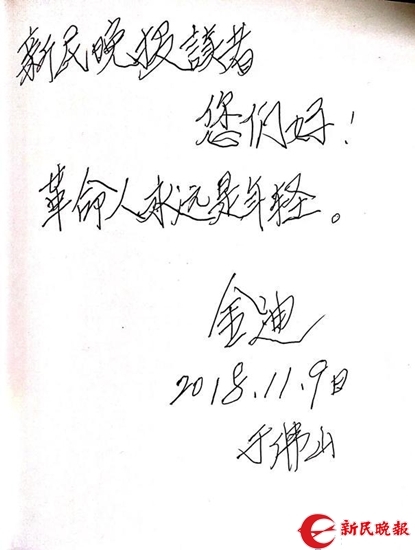 新民晚报读者
您们好！
革命人永远是年轻。
金迪
2018.11.9日
于佛山
新民晚報